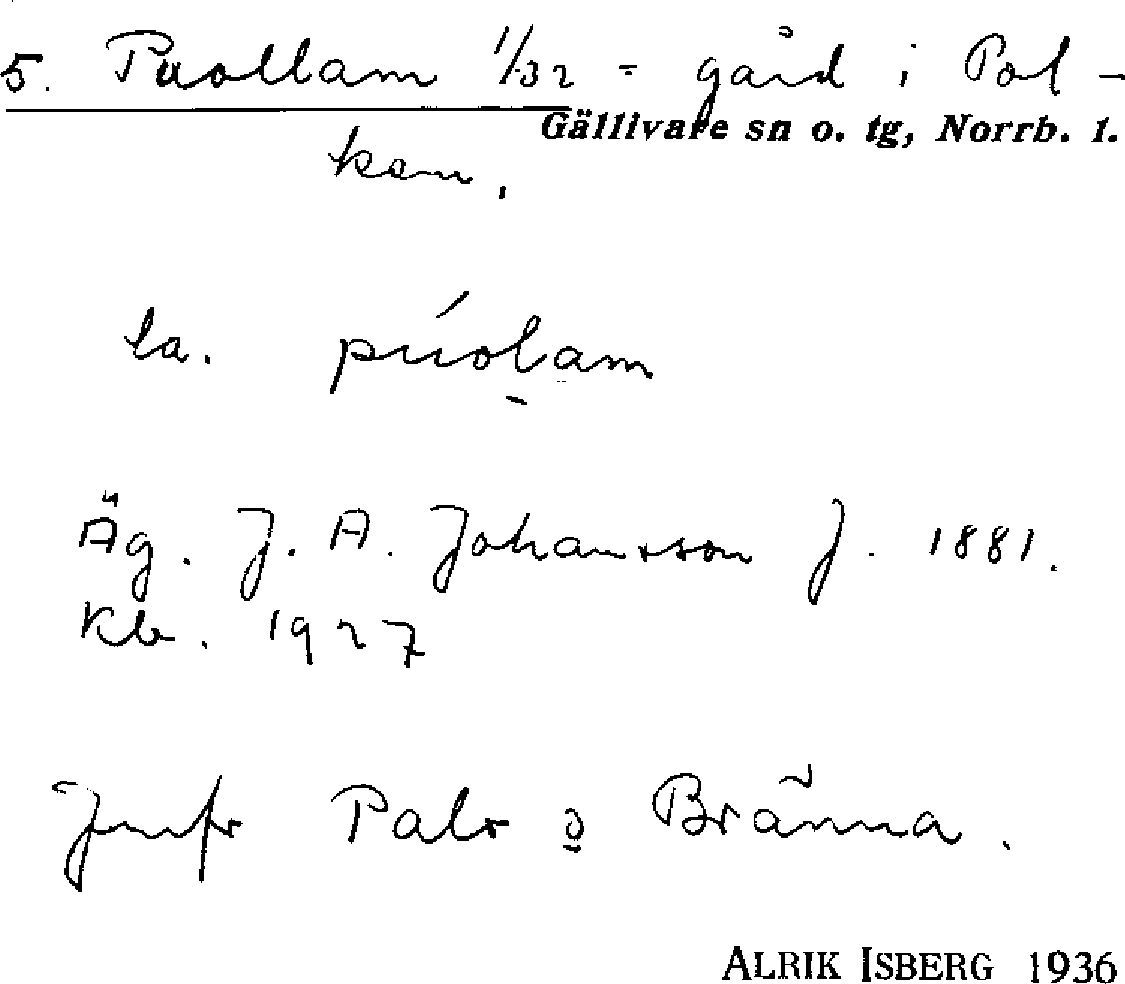 5. Puollam 1/32 = gård i Pol-
Gällivare sn o. tg, Norrb. l.
kem.
la. púolam
Äg. J. A. Johansson f. 1881.
Kb. 1927
Jmfr Palo o Bränna.
ALRIK ISBERG 1936